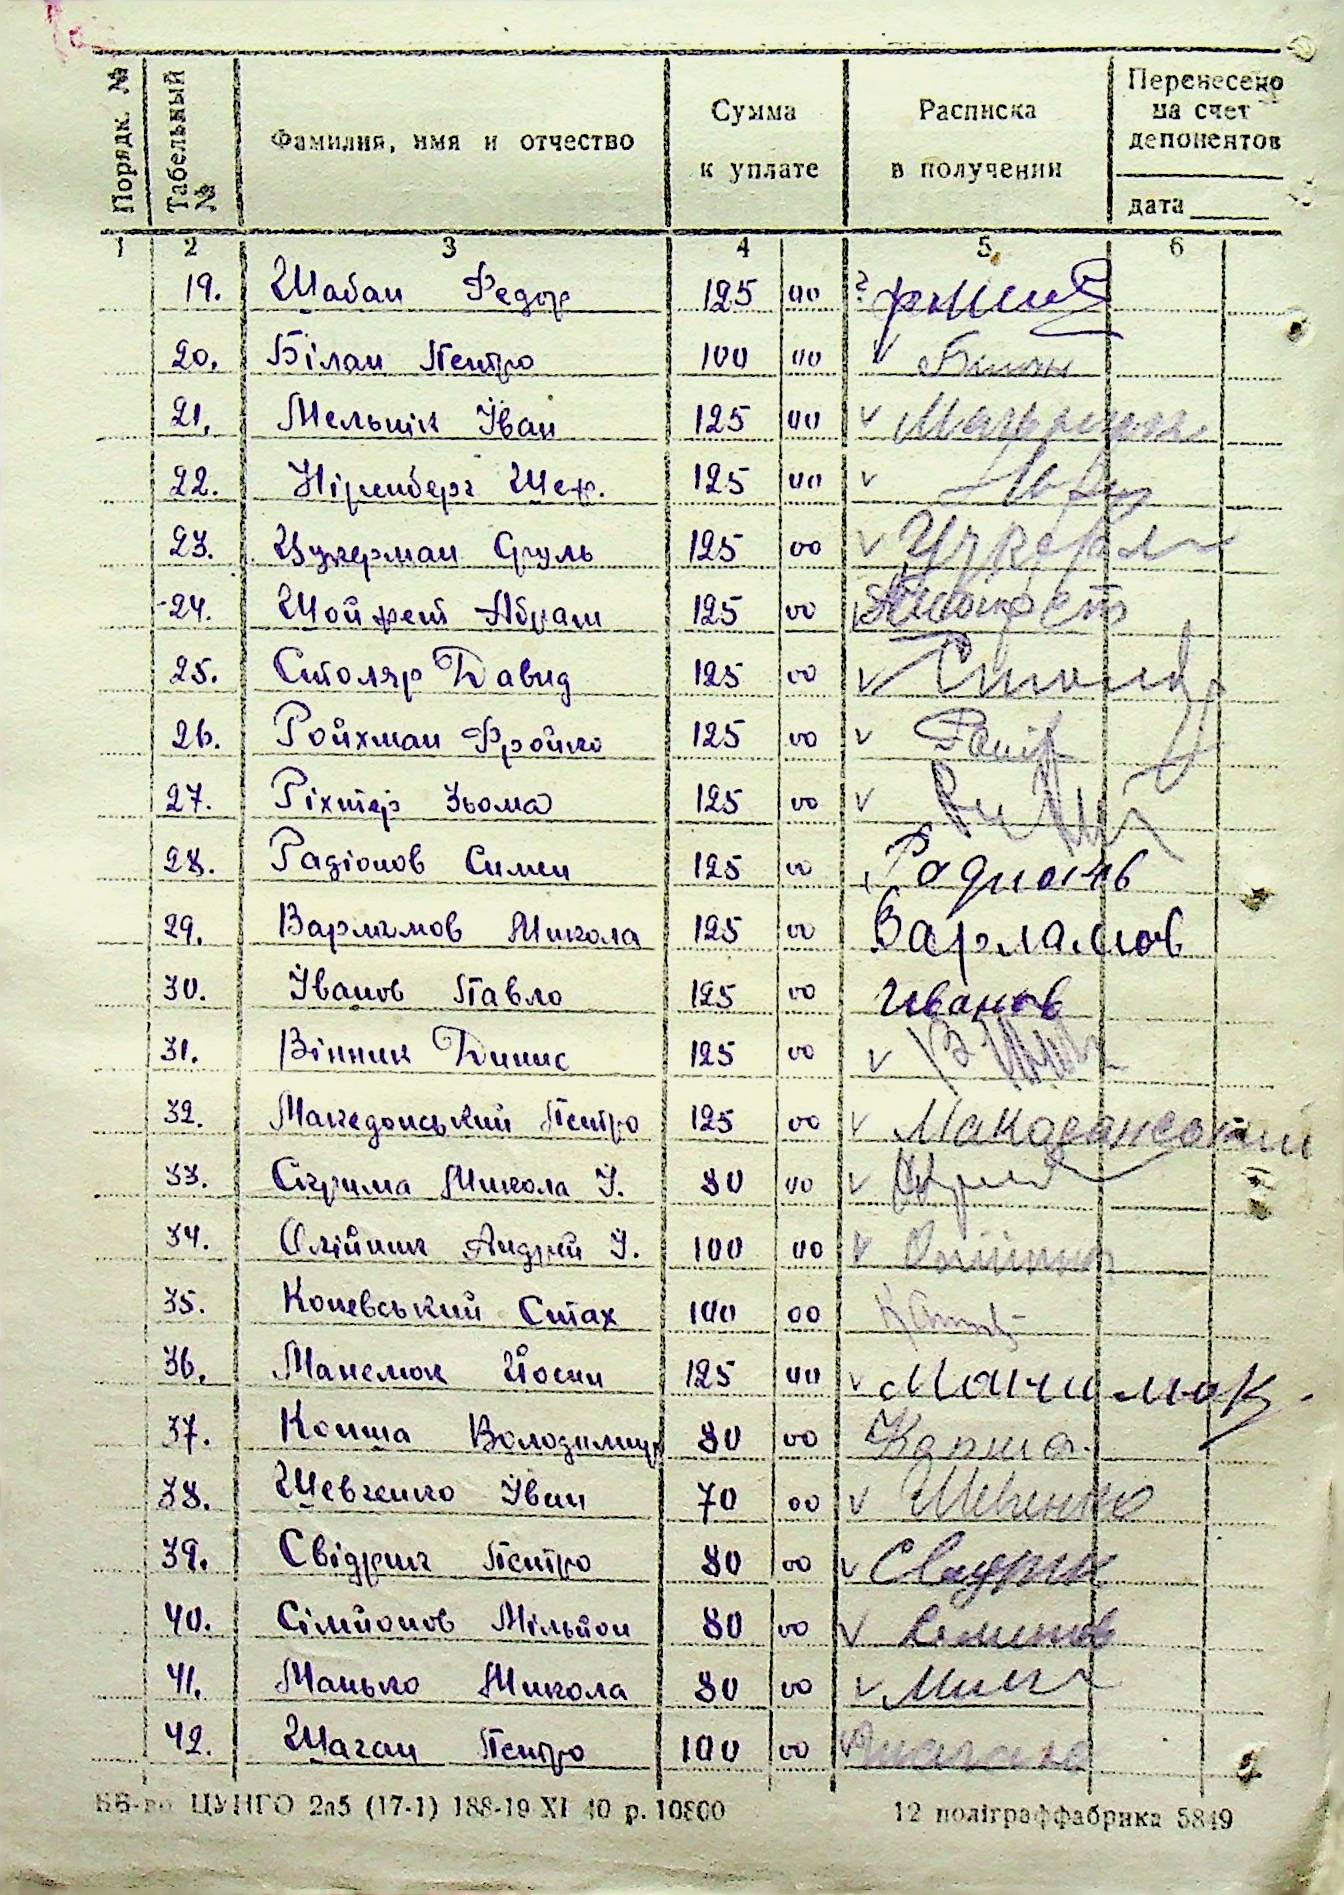 Порядк. №
Табельный №
Фамилия, имя и отчество
Сумма к уплате
Расписка в получении
Перенесено на счет депонентов
дата
1 2 3 4 5 6
19. Шабан Федор 125 00
20. Білан Петро 100 00 Билан
21. Мельнік Іван 125 00
22. Ніренберг Шер. 125 00
23. Цукерман Сруль 125 00
24. Шойхет Абрам 125 00
25. Столяр Давид 125 00 Столяр
26. Ройхман Фройко 125 00
27. Ріхтер Зьома 125 00
28. Радіонов Симен 125 00
29. Варламов Микола 125 00 Варламов
30. Іванов Павло 125 00 Иванов
31. Вінник Динис 125 00
32. Македонський Петро 125 00
33. Скрима Микола І. 80 00
34. Олійник Андрій І. 100 00
35. Коневський Стах 100 00
36. Манелюк Йосип 125 00
37. Копша Володимир 80 00
38. Шевченко Іван 70 00
39. Свідрик Петро 80 00
40. Сімйонов Мільйон 80 00
41. Манько Микола 80 00
42. Шаган Петро 100 00
ЦУНГО 2а5 (17-1) 188-19 XI 40 р. 10800
12 поліграффабрика 5849